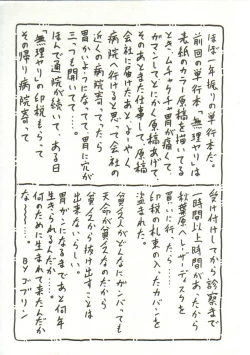 ほぼ一年振りの単行本だ。
前回の単行本『無理ヤリ』は
表紙のカラー原稿を描いてる
ときムチャクチャ胃が痛くて
ガマンしてどーにか原稿あげて、
そのあとまた仕事して、原稿
会社に届けたあとよーやく
病院へ行けると思って会社の
近くの病院寄ってったら
胃かいようになってて、胃に穴が
三つも開いてて……。
ほんで通院が続いて、ある日
『無理ヤリ』の印税もらって
その帰り病院寄って
受け付けしてから診察まで
一時間以上時間があったから
秋葉原へレーザーディスクを
買いに行ったら……
印税の札束の入ったカバンを
盗まれた。
貧乏人がどんなにガンバっても
天命が貧乏なのだから
貧乏から抜け出すことは
出来ないらしい。
胃ガンになるまであと何年
生きられるんだか……。
何のために生まれて来たんだか
なー……。 BYゴブリン